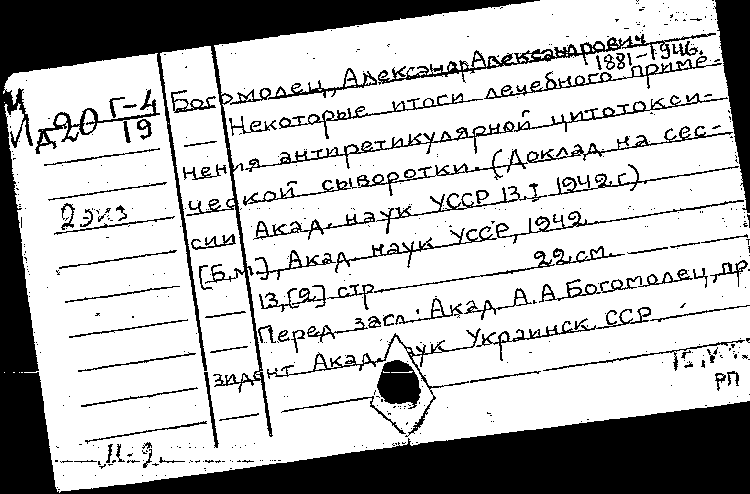 И
Ид20 Г-4
19
Богомолец, Александр Александрович
1881-1946.
Некоторые итоги лечебного приме-
нения антиретикулярной цитотокси-
ческой сыворотки. (Доклад на сес-
2 экз
сии Акад. наук УССР 13.I 1942.г).
[Б.м.], Акад. наук УССР, 1942.
13,[2] стр. 22.см.
Перед загл.: Акад. А.А.Богомолец, пр
зидент Акад. наук Украинск. ССР.
РП
М-2.